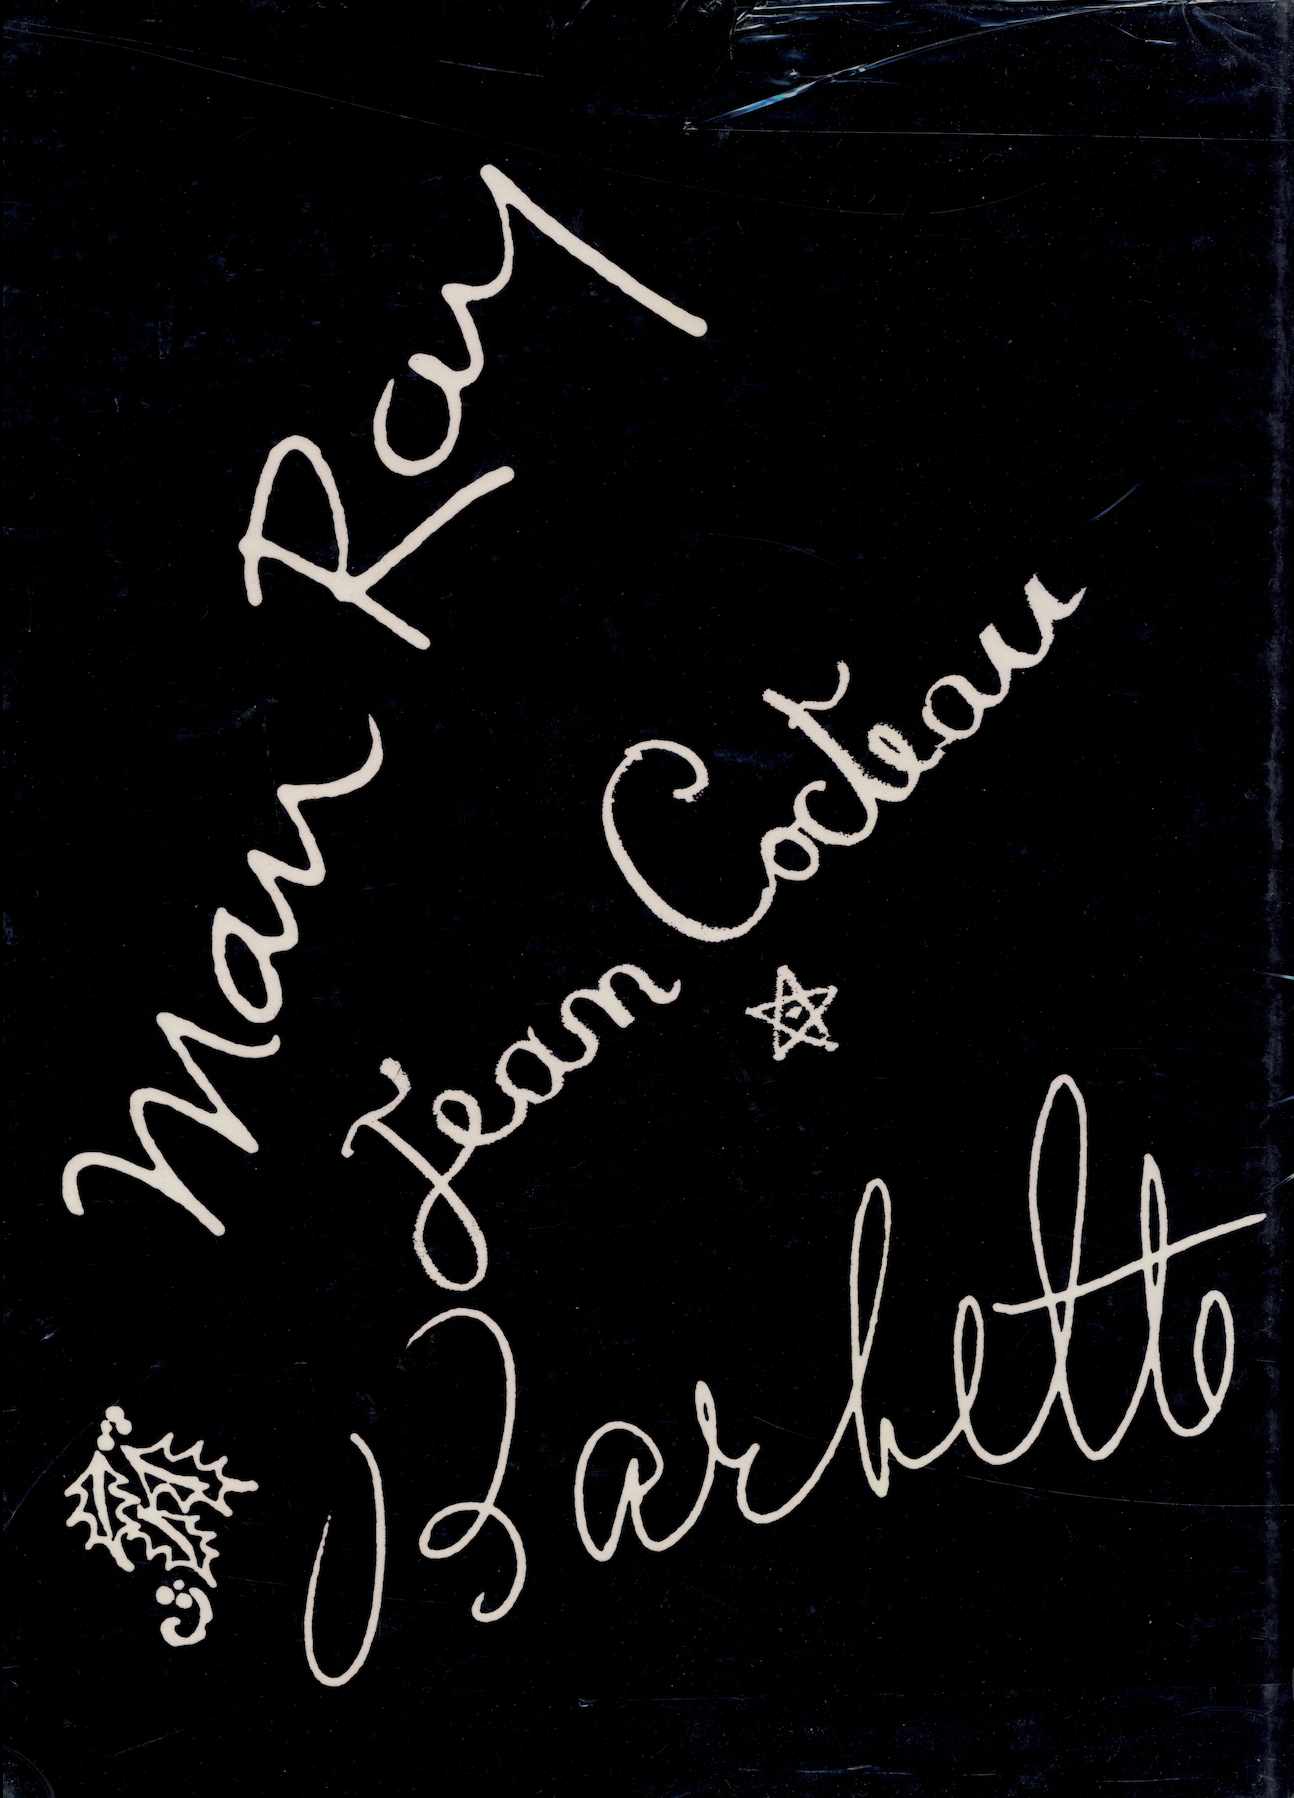 Man Ray
Jean Cocteau
Barbette